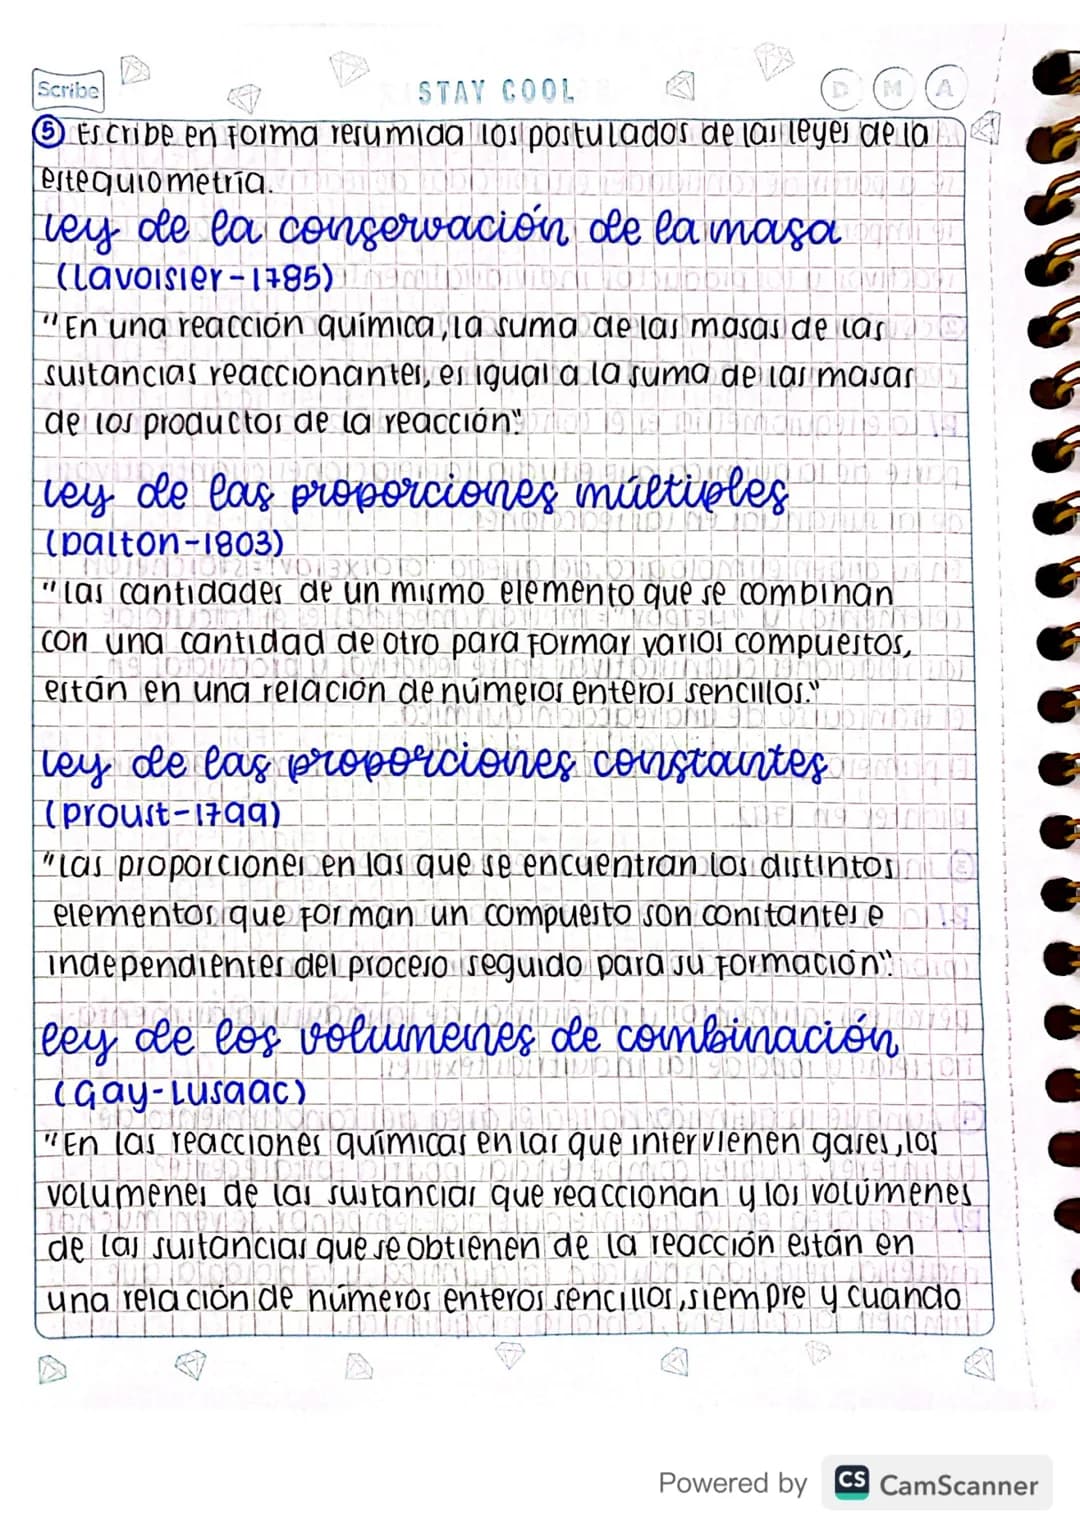 Scribe
STAY COOL
D M A
5 Escribe en forma resumida los postulados de las leyes de la
estequiometría.
ley de la conservación de la masa
(Lavoisier-1785)
"En una reacción química, la suma de las masas de las
sustancias reaccionantes, es igual a la suma de las masas
de los productos de la reacción"
ley de las proporciones múltiples
(Dalton-1803)
"Las cantidades de un mismo elemento que se combinan
con una cantidad de otro para formar varios compuestos,
están en una relación de números enteros sencillos."
ley de las proporciones constantes
(Proust-1799)
"Las proporciones en las que se encuentran los distintos
elementos que forman un compuesto son constantes e
independientes del proceso seguido para su formación".
ley de los volumenes de combinación
(Gay-Lusaac)
"En las reacciones químicas en las que intervienen gases, los
volumenes de las sustancias que reaccionan y los volúmenes
de las sustancias que se obtienen de la reacción están en
una relación de números enteros sencillos, siempre y cuando
Powered by CS CamScanner